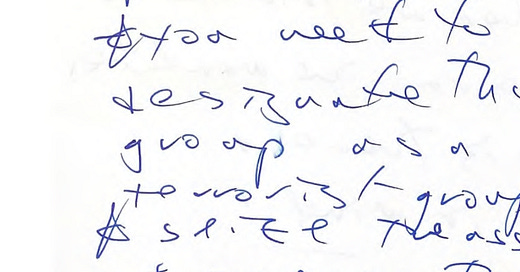 you need to
designate th
group as a
terrorist group
& seize the ass